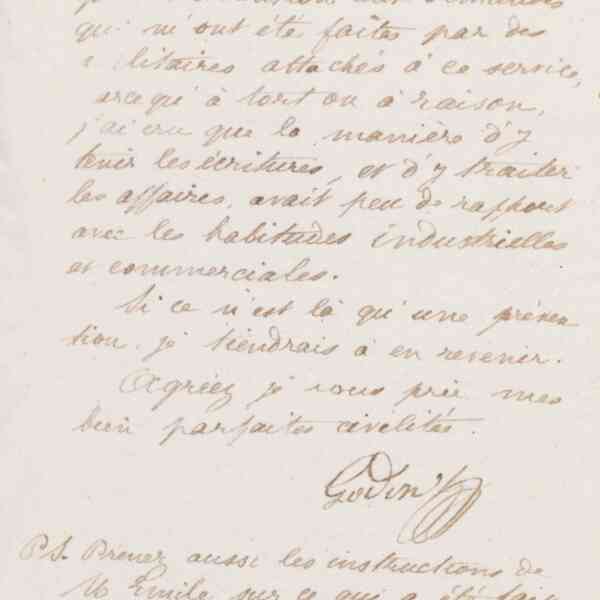 qui m'ont été faites par des
litaires attachés à ce service,
arce qu'à tort ou à raison,
j'ai cru que la manière d'y
tenir les écritures, et d'y traiter
les affaires, avait peu de rapport
avec les habitudes industrielles
et commerciales.
Si ce n'est là qu'une préven
tion, je tiendrais à en revenir.
Agréez je vous prie mes
bien parfaites civilités.
Godin
P.S. Prenez aussi les instructions de
M Emile sur ce qui a été fait